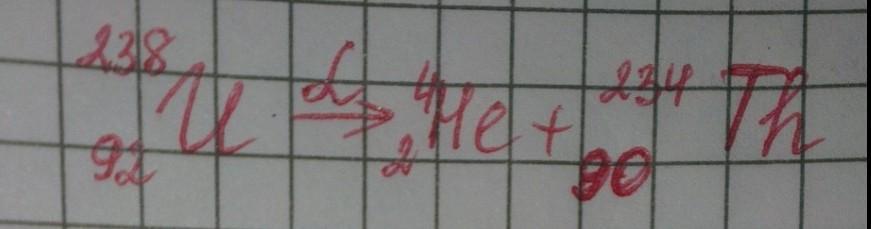 ²³⁸₉₂U α⇒ ⁴₂He + ²³⁴₉₀Th